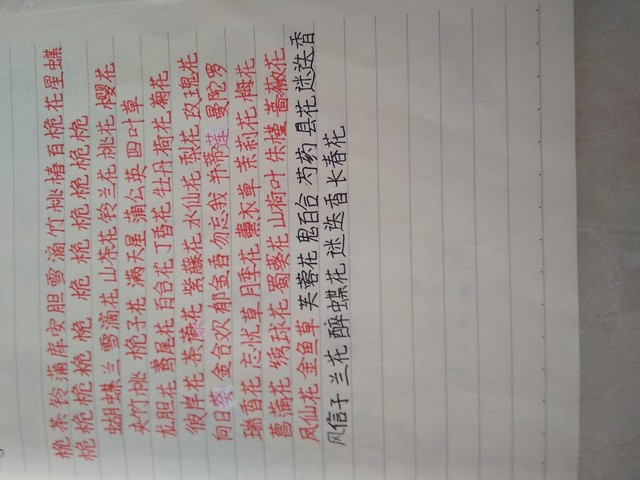 桅茶铃蒲库安胆雪滴竹桃椿百桅花星蝶
桅桅桅桅桅 桅 桅 桅桅桅桅
蝴蝶兰雪滴花山茶花铃兰花桃花樱花
夹竹桃 桅子花 满天星 蒲公英 四叶草
龙胆花鸢尾花百合花丁香花牡丹荷花菊花
彼岸花荼蘼花紫藤花水仙花梨花玫瑰花
向日葵金合欢郁金香勿忘我并蒂莲曼陀罗
瑞香花忘忧草月季花薰衣草茉莉花梅花
菖蒲花绣球花蜀葵花山荷叶朱槿蔷薇花
凤仙花金鱼草芙蓉花鬼百合芍药昙花迷迭香
风信子兰花醉蝶花迷迭香长春花